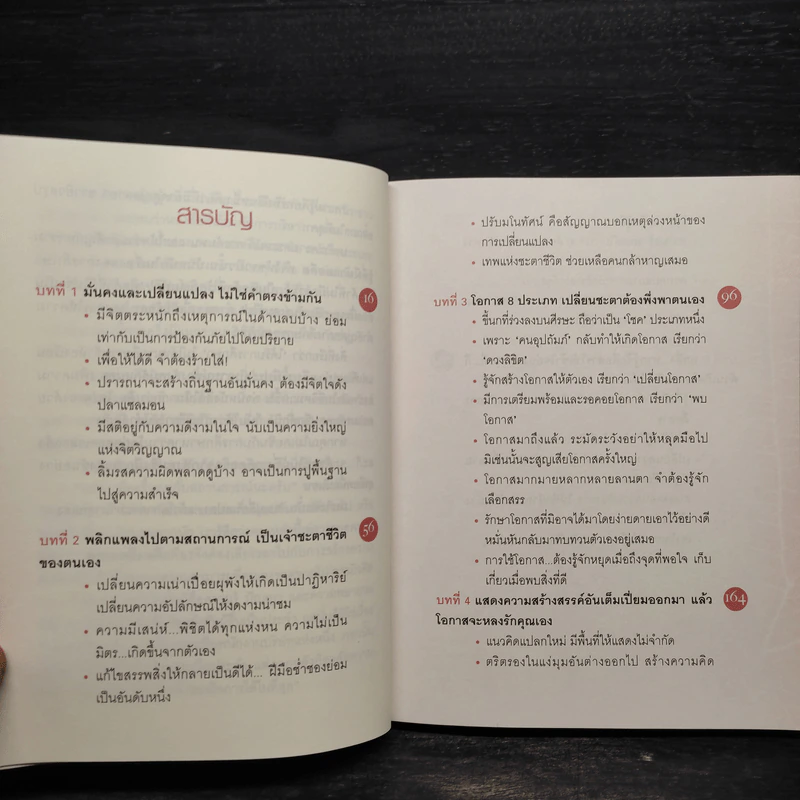 สารบัญ
บทที่ 1 มั่นคงและเปลี่ยนแปลง ไม่ใช่คำตรงข้ามกัน 16
• มีจิตตระหนักถึงเหตุการณ์ในด้านลบบ้าง ย่อม
เท่ากับเป็นการป้องกันภัยไปโดยปริยาย
• เพื่อให้ได้ดี จำต้องร้ายใส่!
• ปรารถนาจะสร้างถิ่นฐานอันมั่นคง ต้องมีจิตใจดัง
ปลาแซลมอน
• มีสติอยู่กับความดีงามในใจ นับเป็นความยิ่งใหญ่
แห่งจิตวิญญาณ
• ลิ้มรสความผิดพลาดดูบ้าง อาจเป็นการปูพื้นฐาน
ไปสู่ความสำเร็จ
บทที่ 2 พลิกแพลงไปตามสถานการณ์ เป็นเจ้าชะตาชีวิต 56
ของตนเอง
• เปลี่ยนความเน่าเปื่อยผุพังให้เกิดเป็นปาฏิหาริย์
เปลี่ยนความอัปลักษณ์ให้งดงามน่าชม
• ความมีเสน่ห์...พิชิตได้ทุกแห่งหน ความไม่เป็น
มิตร...เกิดขึ้นจากตัวเอง
• แก้ไขสรรพสิ่งให้กลายเป็นดีได้... ฝีมือซ่ำซองย่อม
เป็นอันดับหนึ่ง
• ปรับมโนทัศน์ คือสัญญาณบอกเหตุล่วงหน้าของ
การเปลี่ยนแปลง
• เทพแห่งชะตาชีวิต ช่วยเหลือคนกล้าหาญเสมอ
บทที่ 3 โอกาส 8 ประเภท เปลี่ยนชะตาต้องพึ่งพาตนเอง 96
• ขี้นกที่ร่วงลงบนศีรษะ ถือว่าเป็น ‘โชค’ ประเภทหนึ่ง
• เพราะ ‘คนอุปถัมภ์’ กลับทำให้เกิดโอกาส เรียกว่า
‘ดวงลิขิต’
• รู้จักสร้างโอกาสให้ตัวเอง เรียกว่า ‘เปลี่ยนโอกาส’
• มีการเตรียมพร้อมและรอคอยโอกาส เรียกว่า ‘พบ
โอกาส’
• โอกาสมาถึงแล้ว ระมัดระวังอย่าให้หลุดมือไป
มิเช่นนั้นจะสูญเสียโอกาสครั้งใหญ่
• โอกาสมากมายหลากหลายลานตา จำต้องรู้จัก
เลือกสรร
• รักษาโอกาสที่มิอาจได้มาโดยง่ายดายเอาไว้อย่างดี
หมั่นหันกลับมาทบทวนตัวเองอยู่เสมอ
• การใช้โอกาส...ต้องรู้จักหยุดเมื่อถึงจุดที่พอใจ เก็บ
เกี่ยวเมื่อพบสิ่งที่ดี
บทที่ 4 แสดงความสร้างสรรค์อันเต็มเปี่ยมออกมา แล้ว 164
โอกาสจะหลงรักคุณเอง
• แนวคิดแปลกใหม่ มีพื้นที่ให้แสดงไม่จำกัด
• ตริตรองในแง่มุมอันต่างออกไป สร้างความคิด